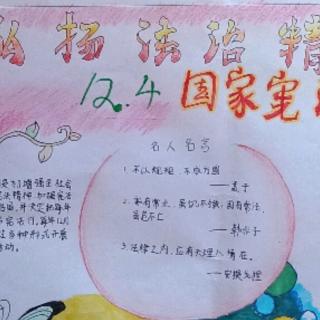 弘扬法治精
12.4 国家宪
名人名言
1. 不以规矩,不成方圆
——孟子
2. 家有常业,虽饥不饿,国有常法,
虽危不亡
——韩非子
3. 法律之内,应有天理人情在。
为了增强全社会
法精神,加强宪法
,并决定将每年
宪法日,每年12月
过多种形式开展
活动。